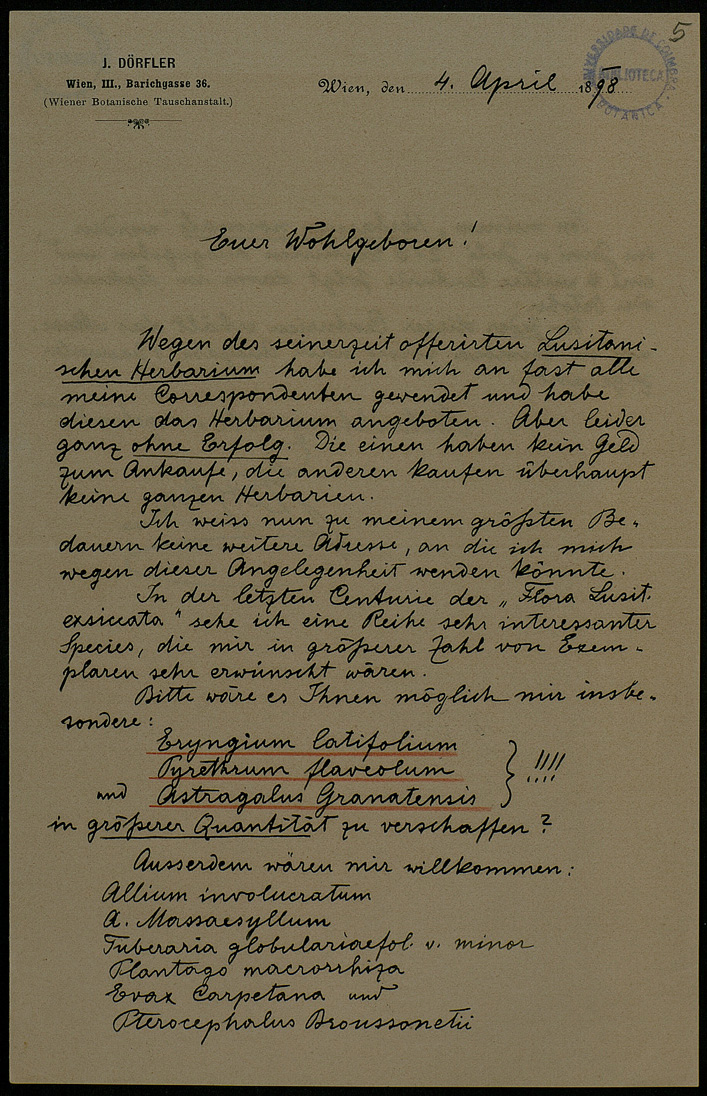 5
J. DÖRFLER
Wien, III., Barichgasse 36.
(Wiener Botanische Tauschanstalt.)
Wien, den 4. April 1898
UNIVERSIDADE DE COIMBRA
BIBLIOTECA
BOTANICA
Euer Wohlgeboren!
Wegen des seinerzeit offerirten Lusitani-
schen Herbarium habe ich mich an fast alle
meine Correspondenten gewendet und habe
diesen das Herbarium angeboten. Aber leider
ganz ohne Erfolg. Die einen haben kein Geld
zum Ankaufe, die anderen kaufen überhaupt
keine ganzen Herbarien.
Ich weiss nun zu meinem größten Be-
dauern keine weitere Adresse, an die ich mich
wegen dieser Angelegenheit wenden könnte.
In der letzten Centurie der „Flora Lusit.
exsiccata" sehe ich eine Reihe sehr interessanter
Species, die mir in größerer Zahl von Exem-
plaren sehr erwünscht wären.
Bitte wäre es Ihnen möglich mir insbe-
sondere:
Eryngium latifolium
Pyrethrum flaveolum } !!!!
und Astragalus Granatensis
in größerer Quantität zu verschaffen?
Ausserdem wären mir willkommen:
Allium involucratum
A. Massaesyllum
Tuberaria globulariaefol. v. minor
Plantago macrorrhiza
Evax Carpetana und
Pterocephalus Broussonetii